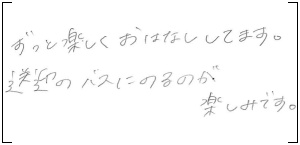 ずっと楽しくおはなししてます。
送迎のバスにのるのが
楽しみです。